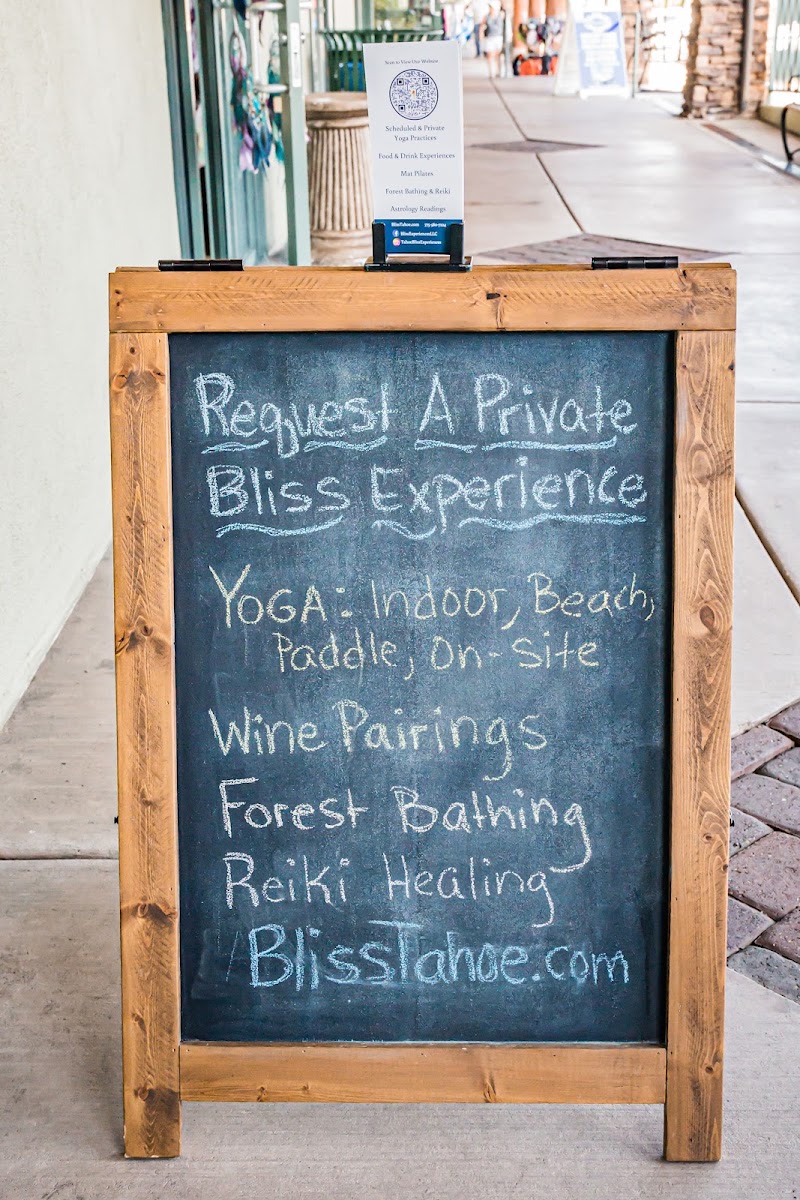 Scan to View Our Website
Scheduled & Private
Yoga Practices
Food & Drink Experiences
Mat Pilates
Forest Bathing & Reiki
Astrology Readings
BlissTahoe.com
BlissExperiencesLLC
TahoeBlissExperiences
Request A Private
Bliss Experience
YOGA: Indoor, Beach,
Paddle, On-Site
Wine Pairings
Forest Bathing
Reiki Healing
BlissTahoe.com